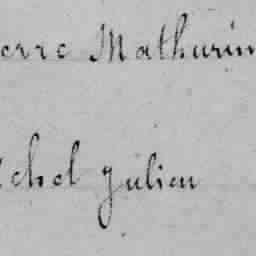 erre Mathurin
chel julien